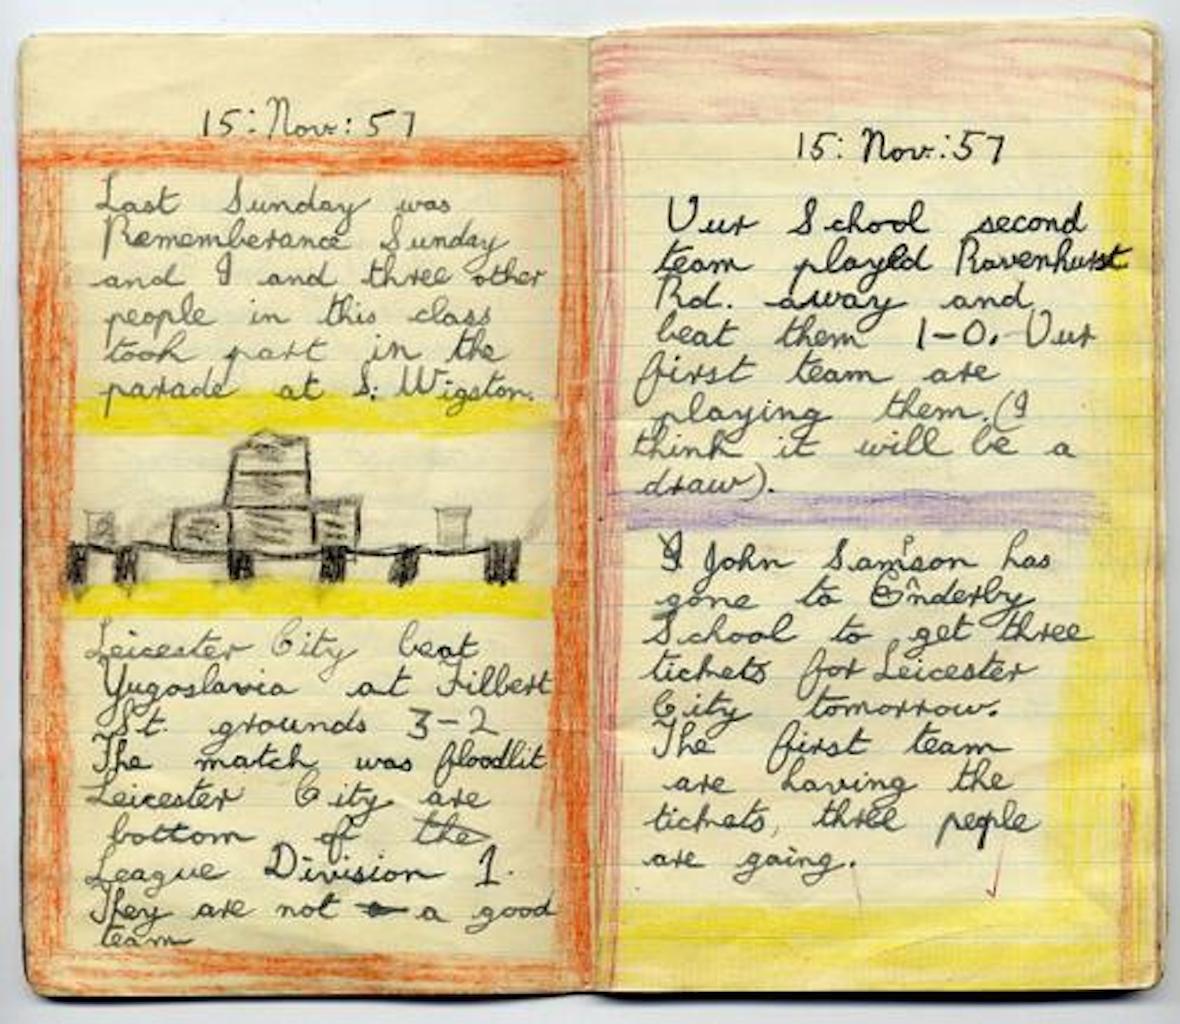 15: Nov: 57
Last Sunday was
Rememberance Sunday
and I and three other
people in this class
took part in the
parade at S. Wigston.
Leicester City beat
Yugoslavia at Filbert
St. grounds 3-2
The match was floodlit
Leicester City are
bottom of the
League Division 1.
They are not a good
team
15: Nov: 57
Our School second
team played Ravenhurst
Rd. away and
beat them 1-0. Our
first team are
playing them. (I
think it will be a
draw).
John Samson has
gone to Enderby
School to get three
tickets for Leicester
City tomorrow.
The first team
are having the
tickets, three people
are going.